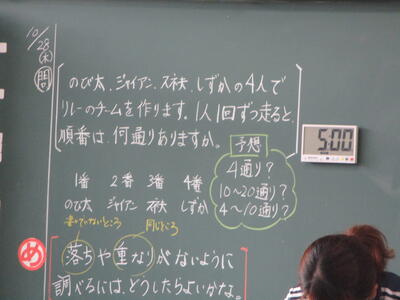 10/28(木)
問
のび太、ジャイアン、スネ夫、しずかの4人で
リレーのチームを作ります。1人1回ずつ走ると、
順番は、何通りありますか。
予想
4通り?
10〜20通り?
4〜10通り?
5:00
1番 2番 3番 4番
のび太 ジャイアン スネ夫 しずか
同じところ
め
落ちや重なりがないように
調べるには、どうしたらよいかな。